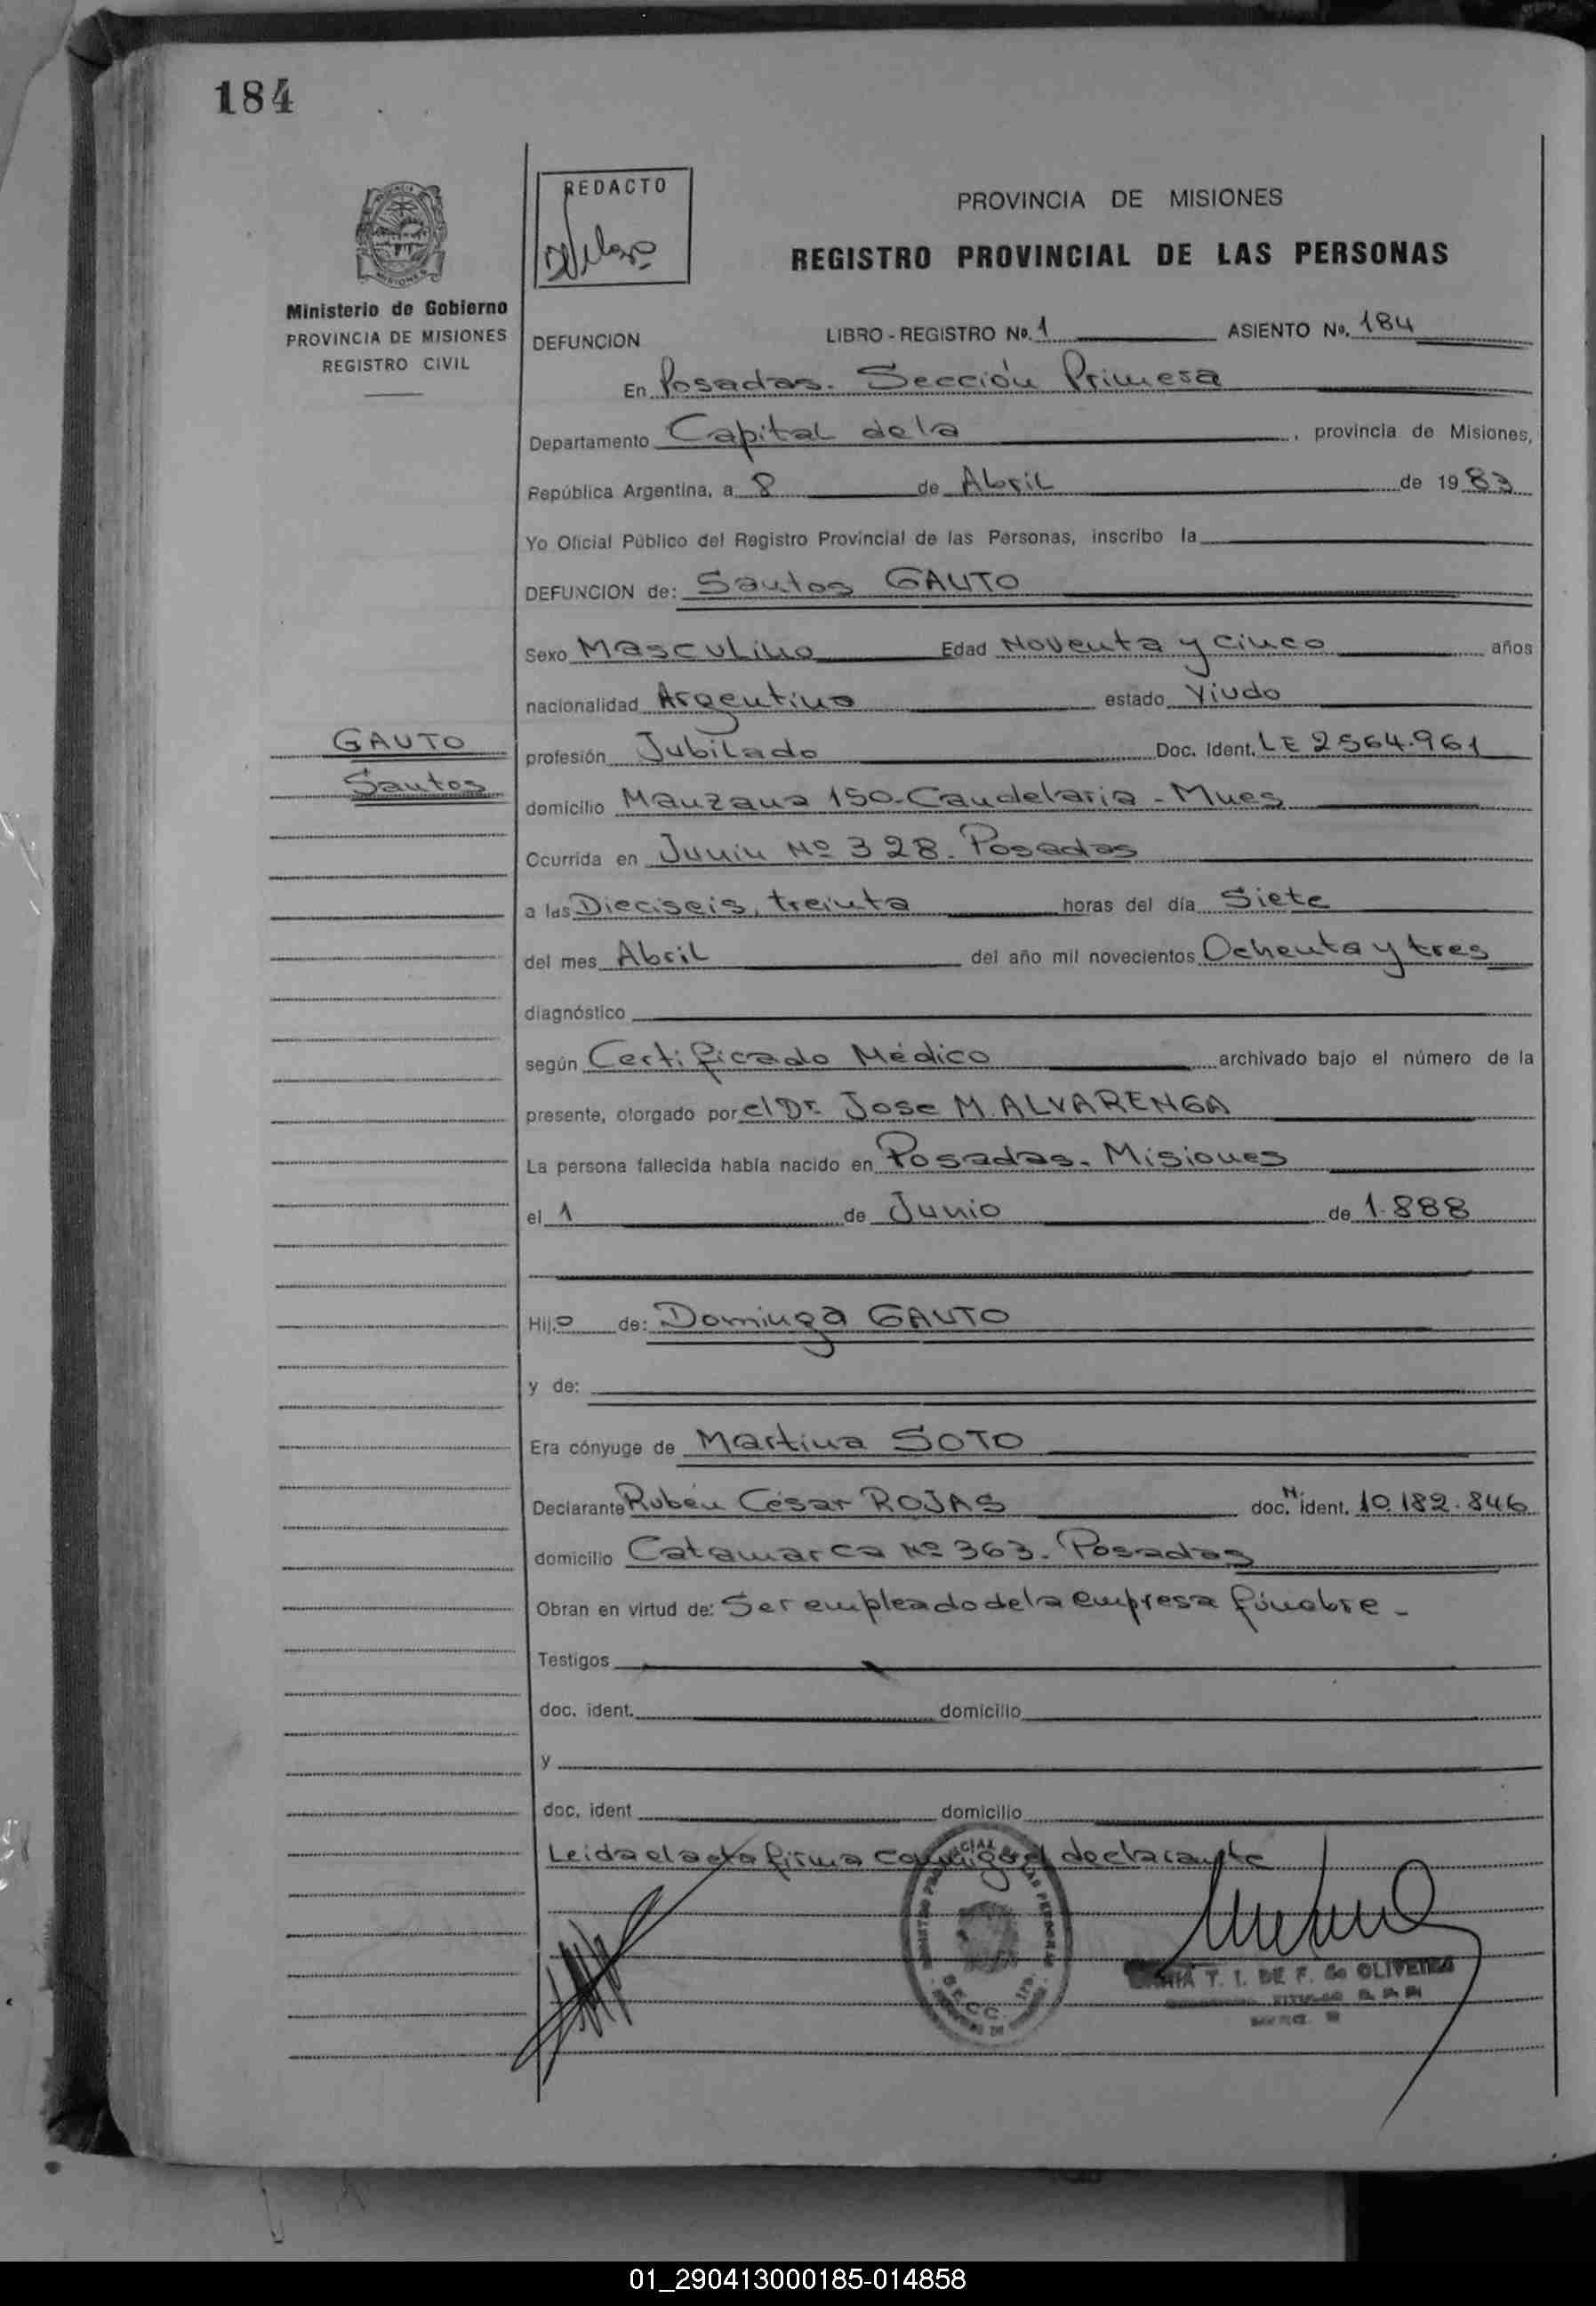 184
REDACTO
Ministerio de Gobierno
PROVINCIA DE MISIONES
REGISTRO CIVIL
PROVINCIA DE MISIONES
REGISTRO PROVINCIAL DE LAS PERSONAS
DEFUNCION LIBRO - REGISTRO Nº. 1 ASIENTO Nº. 184
En Posadas. Sección Primera
Departamento Capital de la , provincia de Misiones,
República Argentina, a 8 de Abril de 1983
Yo Oficial Público del Registro Provincial de las Personas, inscribo la
DEFUNCION de: Santos GAUTO
Sexo Masculino Edad Noventa y cinco años
nacionalidad Argentino estado Viudo
GAUTO
Santos
profesión Jubilado Doc. Ident. LE 2564.961
domicilio Manzana 150-Candelaria - Mnes
Ocurrida en Junin Nº 328. Posadas
a las Dieciseis, treinta horas del día Siete
del mes Abril del año mil novecientos Ochenta y tres
diagnóstico
según Certificado Médico archivado bajo el número de la
presente, otorgado por el Dr. Jose M. ALVARENGA
La persona fallecida había nacido en Posadas. Misiones
el 1 de Junio de 1.888
Hijo de: Dominga GAUTO
y de:
Era cónyuge de Martina SOTO
Declarante Rubén César ROJAS doc. N. ident. 10.182.846
domicilio Catamarca Nº 363. Posadas
Obran en virtud de: Ser empleado de la empresa fúnebre -
Testigos
doc. ident. domicilio
y
doc. ident domicilio
Leida el acta firma conmigo el declarante
T. I. DE F. de OLIVEIRA
01_290413000185-014858